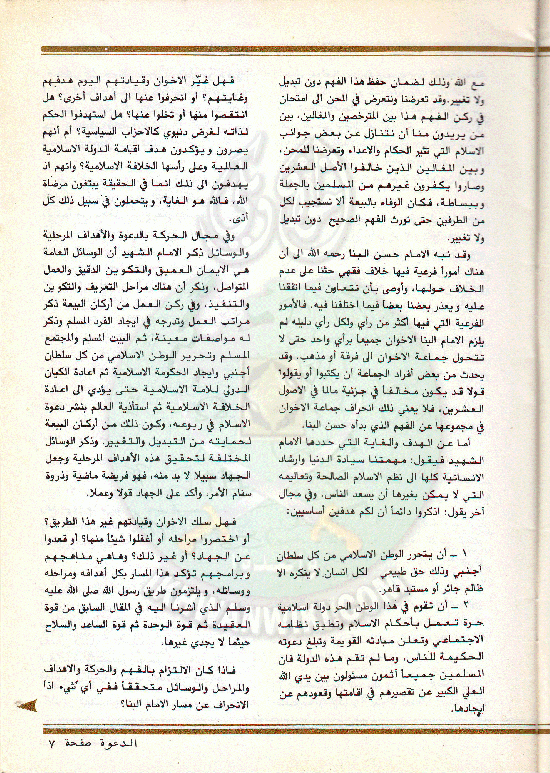 مع الله وذلك لضمان حفظ هذا الفهم دون تبديل
ولا تغيير. وقد تعرضنا ونتعرض في المحن الى امتحان
في ركن الفهم هذا بين المترخصين والمغالين، بين
من يريدون منا أن نتنازل عن بعض جوانب
الاسلام التي تثير الحكام والاعداء وتعرضنا للمحن،
وبين المغالين الذين خالفوا الأصل العشرين
وصاروا يكفرون غيرهم من المسلمين بالجملة
وببساطة، فكان الوفاء بالبيعة ألا نستجيب لكل
من الطرفين حتى نورث الفهم الصحيح دون تبديل
ولا تغيير.
وقد نبه الامام حسن البنا رحمه الله الى أن
هناك أموراً فرعية فيها خلاف فقهي حثنا على عدم
الخلاف حولها، وأوصى بأن نتعاون فيما اتفقنا
عليه ويعذر بعضنا بعضاً فيما اختلفنا فيه. فالأمور
الفرعية التي فيها أكثر من رأي ولكل رأي دليله لم
يلزم الامام البنا الاخوان جميعاً برأي واحد حتى لا
تتحول جماعة الاخوان الى فرقة أو مذهب. وقد
يحدث من بعض أفراد الجماعة أن يكتبوا أو يقولوا
قولا قد يكون مخالفاً في جزئية مالا في الاصول
العشرين، فلا يعني ذلك انحراف جماعة الاخوان
في مجموعها عن الفهم الذي بدأه حسن البنا.
أما عن الهدف والغاية التي حددها الامام
الشهيد فيقول: مهمتنا سيادة الدنيا وارشاد
الانسانية كلها الى نظم الاسلام الصالحة وتعاليمه
التي لا يمكن بغيرها أن يسعد الناس، وفي مجال
آخر يقول: اذكروا دائماً أن لكم هدفين أساسيين:
١ – أن يتحرر الوطن الاسلامي من كل سلطان
أجنبي وذلك حق طبيعي لكل انسان لا ينكره الا
ظالم جائر أو مستبد قاهر.
٢ – أن تقوم في هذا الوطن الحر دولة اسلامية
حرة تعمل بأحكام الاسلام وتطبق نظامه
الاجتماعي وتعلن مبادئه القويمة وتبلغ دعوته
الحكيمة للناس، وما لم تقم هذه الدولة فان
المسلمين جميعاً آثمون مسئولون بين يدي الله
العلي الكبير عن تقصيرهم في اقامتها وقعودهم عن
ايجادها.
فهل غيّر الاخوان وقيادتهم اليوم هدفهم
وغايتهم؟ أو انحرفوا عنها الى أهداف أخرى؟ هل
انتقصوا منها أو تخلوا عنها؟ هل استهدفوا الحكم
لذاته لغرض دنيوي كالاحزاب السياسية؟ أم أنهم
يصرون ويؤكدون هدف اقامة الدولة الاسلامية
العالمية وعلى رأسها الخلافة الاسلامية؟ وانهم اذ
يهدفون الى ذلك انما في الحقيقة يبتغون مرضاة
الله، فالله هو الغاية، ويتحملون في سبيل ذلك كل
أذى.
وفي مجال الحركة بالدعوة والأهداف المرحلية
والوسائل ذكر الامام الشهيد أن الوسائل العامة
هي الايمان العميق والتكوين الدقيق والعمل
المتواصل، وذكر أن هناك مراحل التعريف والتكوين
والتنفيذ، وفي ركن العمل من أركان البيعة ذكر
مراتب العمل وتدرجه في ايجاد الفرد المسلم وذكر
له مواصفات معينة، ثم البيت المسلم والمجتمع
المسلم وتحرير الوطن الاسلامي من كل سلطان
أجنبي وايجاد الحكومة الاسلامية ثم اعادة الكيان
الدولي للامة الاسلامية حتى يؤدي الى اعادة
الخلافة الاسلامية ثم استاذية العالم بنشر دعوة
الاسلام في ربوعه، وكون ذلك من أركان البيعة
لحمايته من التبديل والتغيير. وذكر الوسائل
المختلفة لتحقيق هذه الاهداف المرحلية وجعل
الجهاد سبيلا لا بد منه، فهو فريضة ماضية وذروة
سنام الأمر. وأكد على الجهاد قولا وعملا.
فهل سلك الاخوان وقيادتهم غير هذا الطريق؟
أو اختصروا مراحله أو أغفلوا شيئاً منها؟ أو قعدوا
عن الجهاد؟ أو غير ذلك؟ وهاهي مناهجهم
وبرامجهم تؤكد هذا المسار بكل أهدافه ومراحله
ووسائله، ويلتزمون طريق رسول الله صلى الله عليه
وسلم الذي أشرنا اليه في المقال السابق من قوة
العقيدة ثم قوة الوحدة ثم قوة الساعد والسلاح
حينما لا يجدي غيرها.
فاذا كان الالتزام بالفهم والحركة والاهداف
والمراحل والوسائل متحققاً ففي أي شيء اذاً
الانحراف عن مسار الامام البنا؟
الدعوة صفحة ٧